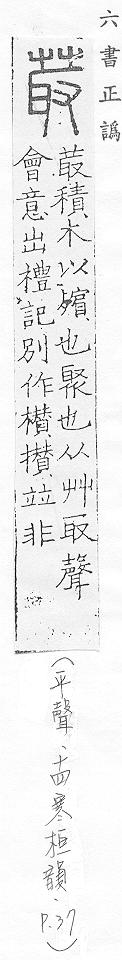 六書正譌
菆
菆積木以殯也聚也从艸取聲
會意出禮記別作欑攢竝非
(平聲、十四寒桓韻、P.37)